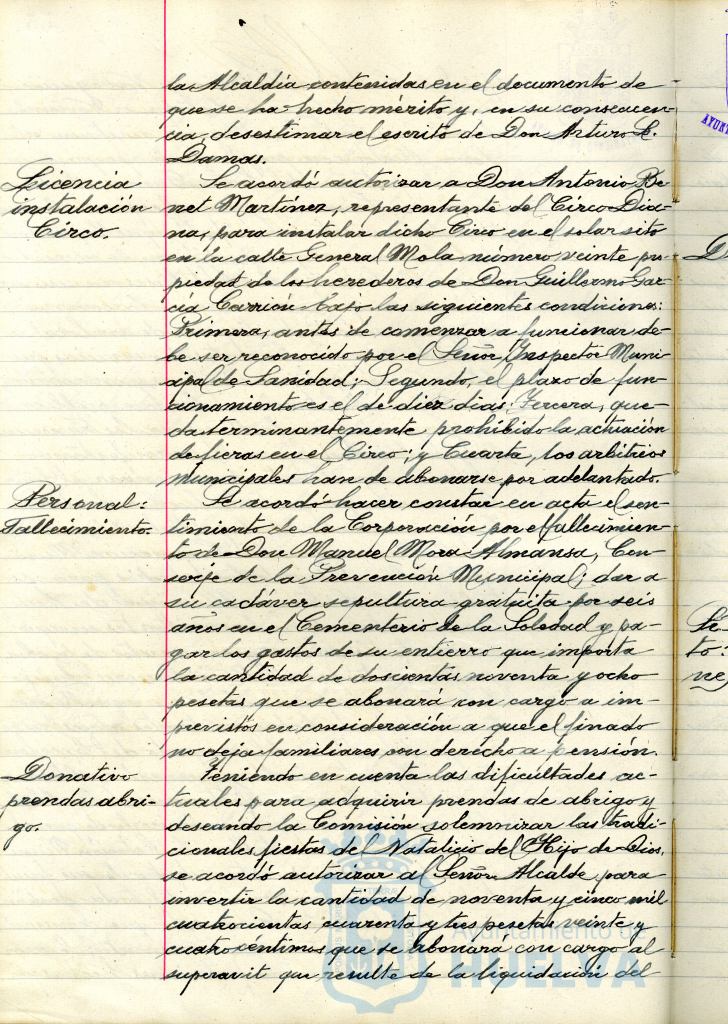 la Alcaldía contenidas en el documento de
que se ha hecho mérito y, en su consecuen-
cia, desestimar el escrito de Don Arturo
Damas.
Licencia
instalación
Circo.
Se acordó autorizar a Don Antonio Be-
net Martínez, representante del Circo Dia-
na, para instalar dicho Circo en el solar sito
en la calle General Mola número veinte pro
piedad de los herederos de Don Guillermo Gar-
cía Carrión bajo las siguientes condiciones:
Primera, antes de comenzar a funcionar de-
be ser reconocido por el Señor Inspector Muni-
cipal de Sanidad; Segundo, el plazo de fun-
cionamiento es el de diez días; Tercera, que-
da terminantemente prohibido la actuación
de fieras en el Circo; y Cuarta, los arbitrios
municipales han de abonarse por adelantado.
Personal:
Fallecimiento.
Se acordó hacer constar en acta el sen-
timiento de la Corporación por el fallecimien-
to de Don Manuel Mora Almansa, Con-
serje de la Prevención Municipal; dar a
su cadáver sepultura gratuita por seis
años en el Cementerio de la Soledad y pa-
gar los gastos de su entierro que importa
la cantidad de doscientas noventa y ocho
pesetas que se abonará con cargo a im-
previstos en consideración a que el finado
no deja familiares con derecho a pensión.
Donativo
prendas abri-
go.
Teniendo en cuenta las dificultades ac-
tuales para adquirir prendas de abrigo y
deseando la Comisión solemnizar las tradi-
cionales fiestas del Natalicio del Hijo de Dios,
se acordó autorizar al Señor Alcalde para
invertir la cantidad de noventa y cinco mil
cuatrocientas cuarenta y tres pesetas veinte y
cuatro centimos que se abonara con cargo al
superavit que resulte de la liquidación del
Ayuntamiento de
HUELVA